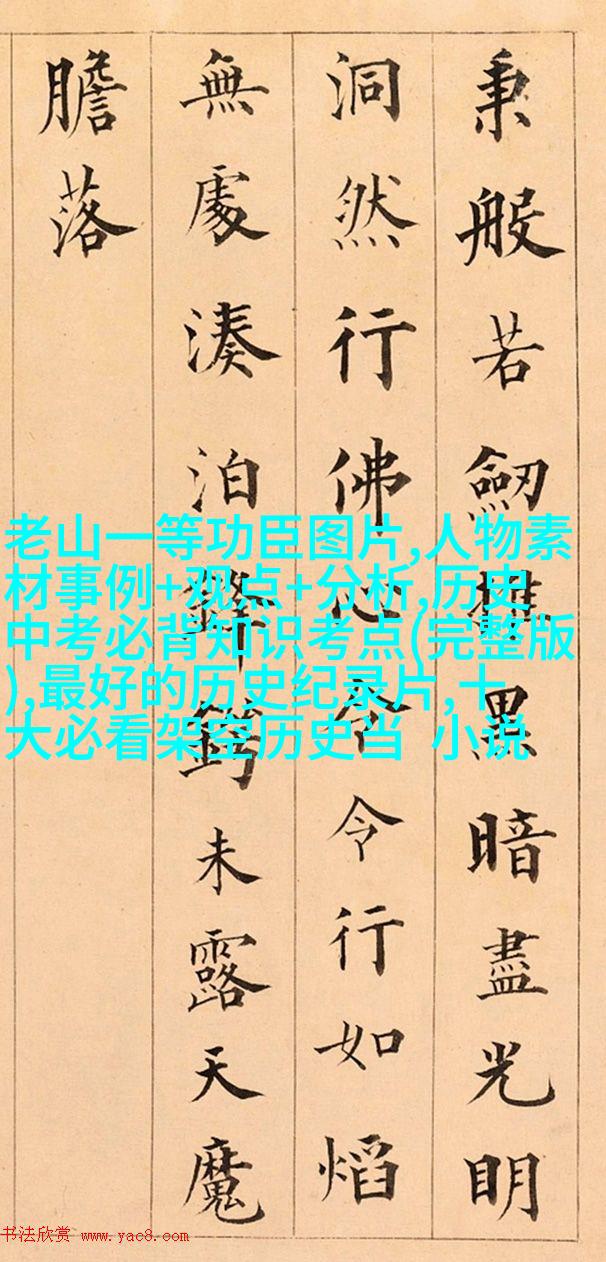 秉般若劔摧黑暗盡光明
洞然行佛心令令行如熖
無處湊泊鋒鍔未露天魔
膽落
老山一等功臣图片,人物素
材事例+观点+分析,历史
中考必背知识考点(完整版
),最好的历史纪录片,十
大必看架空历史当 小说
书法欣赏 www.yac8.com